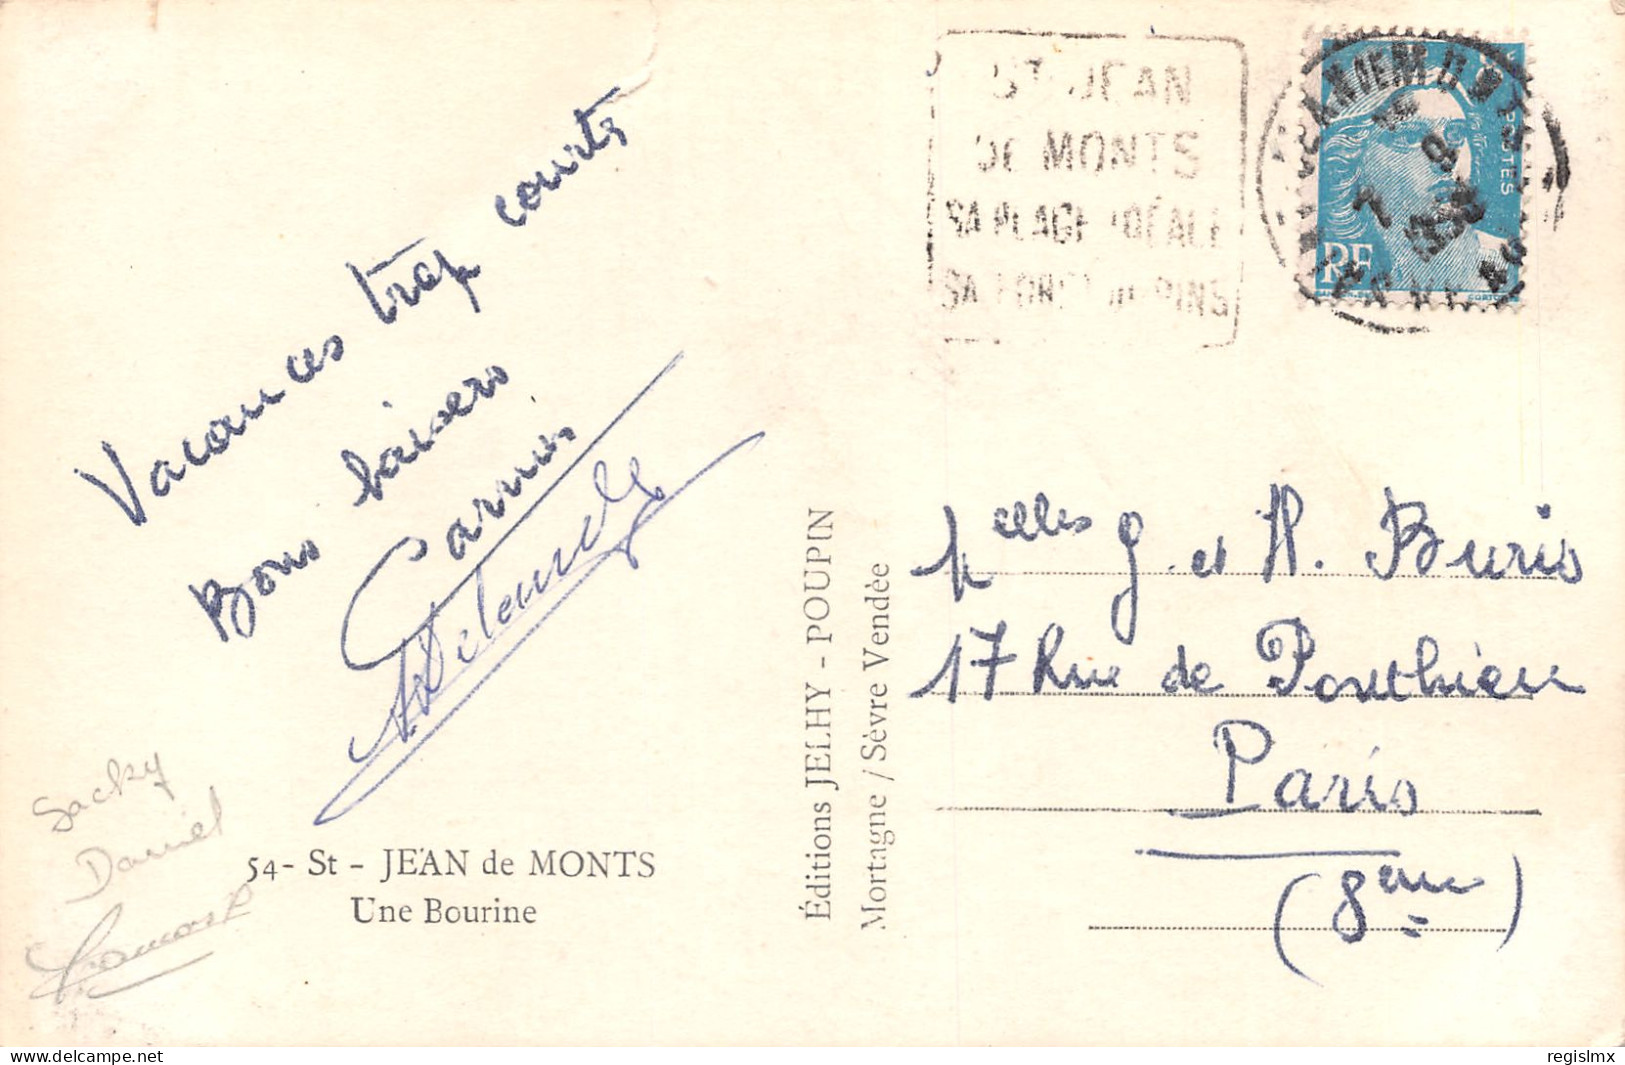 Vacances trop courtes
Bons baisers
Jacky
Daniel
54- St - JEAN de MONTS
Une Bourine
Éditions JELHY - POUPIN
Mortagne / Sèvre Vendée
ST JEAN
DE MONTS
SA PLAGE IDÉALE
SA FORET DE PINS
POSTES
RF
Melles G. et H. Buris
17 Rue de Ponthieu
Paris
(8eme)
delcampe.net
regislmx